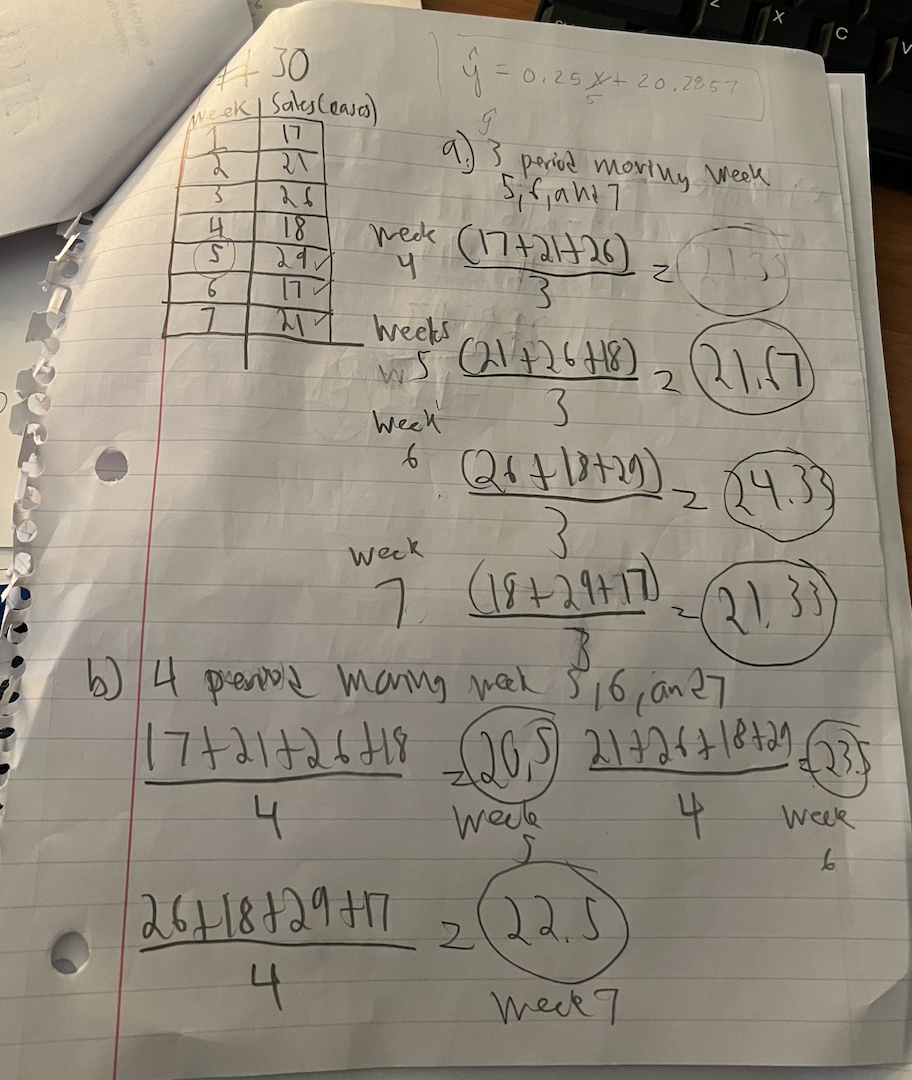 # 30
ŷ = 0.25x + 20.2857
5
Week | Sales (cases)
1 17
2 21
3 26
4 18
5 29 ✓
6 17 ✓
7 21 ✓
a.) 3 period moving week
5, 6, and 7
Week 4 (17+21+26) / 3 = 21.33
Weeks
w5 (21+26+18) / 3 = 21.67
Week 6 (26+18+29) / 3 = 24.33
Week 7 (18+29+17) / 3 = 21.33
b) 4 period moving week 5, 6, and 7
17+21+26+18 / 4 = 20.5 Week 5
21+26+18+29 / 4 = 23.5 Week 6
26+18+29+17 / 4 = 22.5 Week 7
Z
X
C
V